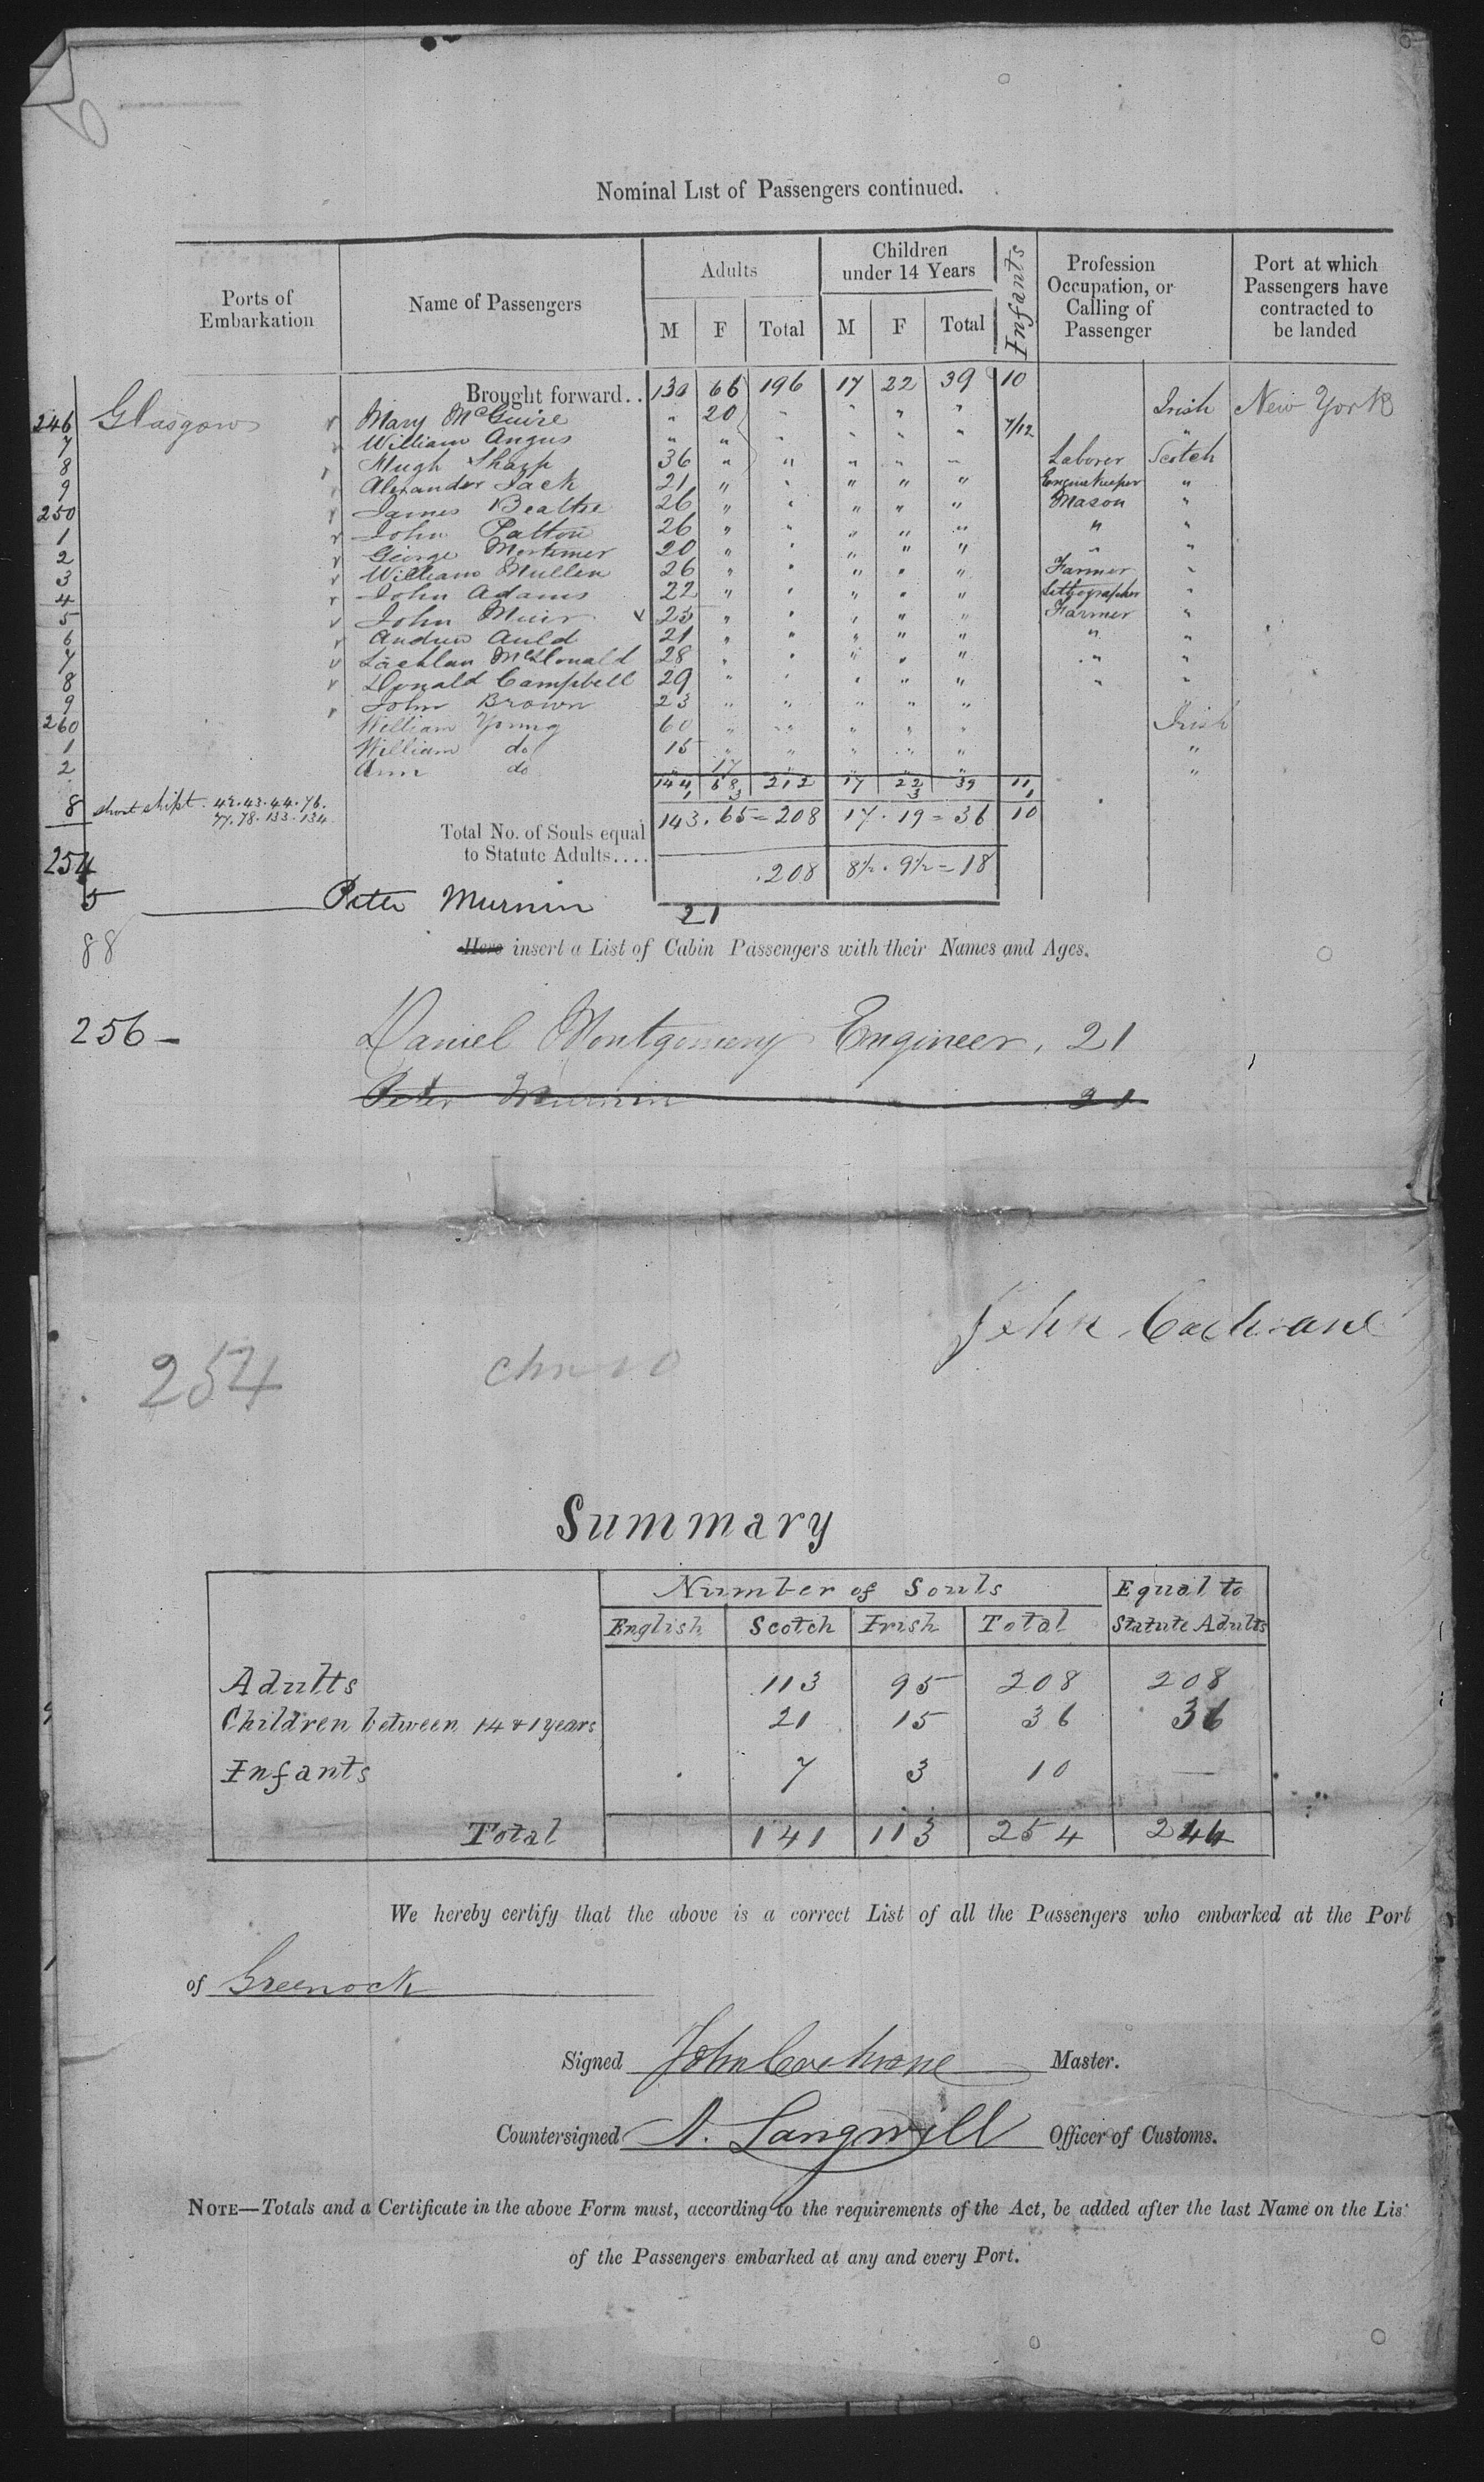 6
Nominal List of Passengers continued.
Ports of Embarkation | Name of Passengers | Adults M F Total | Children under 14 Years M F Total | Infants | Profession Occupation, or Calling of Passenger | Port at which Passengers have contracted to be landed
Brought forward.. 130 66 196 17 22 39 10
246 Glasgow Mary McGuire " 20 " " " " Irish New York
7 William Angus " " " " " " 7/12 "
8 Hugh Sharp 36 " " " " " Laborer Scotch
9 Alexander Jack 21 " " " " " Enginekeeper "
250 James Beattie 26 " " " " " Mason "
1 John Patton 26 " " " " " " "
2 George Mortimer 20 " " " " " " "
3 William Mullen 26 " " " " " Farmer "
4 John Adams 22 " " " " " Lithographer "
5 John Muir 25 " " " " " Farmer "
6 Andrew Auld 21 " " " " " " "
7 Lachlan McDonald 28 " " " " " " "
8 Donald Campbell 29 " " " " " " "
9 John Brown 23 " " " " "
260 William Young 60 " " " " " Irish
1 William do 15 " " " " " "
2 Ann do " 17 " " " " "
144 68 212 17 22 39 11
1 3 3 1
8 short shipt. 42. 43. 44. 76.
77. 78. 133. 134.
143. 65 = 208 17. 19 = 36 10
Total No. of Souls equal
to Statute Adults.... 208 8½. 9½ = 18
254
5 Peter Murnin 21
88
Here insert a List of Cabin Passengers with their Names and Ages.
256 - Daniel Montgomery Engineer, 21
Peter Murnin 21
John Cochrane
254
Summary
Number of Souls | Equal to
English | Scotch | Irish | Total | Statute Adults
Adults 113 95 208 208
Children between 14 & 1 years 21 15 36 36
Infants 7 3 10 —
Total 141 113 254 244
We hereby certify that the above is a correct List of all the Passengers who embarked at the Port
of Greenock
Signed John Cochrane Master.
Countersigned A. Langwill Officer of Customs.
NOTE—Totals and a Certificate in the above Form must, according to the requirements of the Act, be added after the last Name on the Lis
of the Passengers embarked at any and every Port.